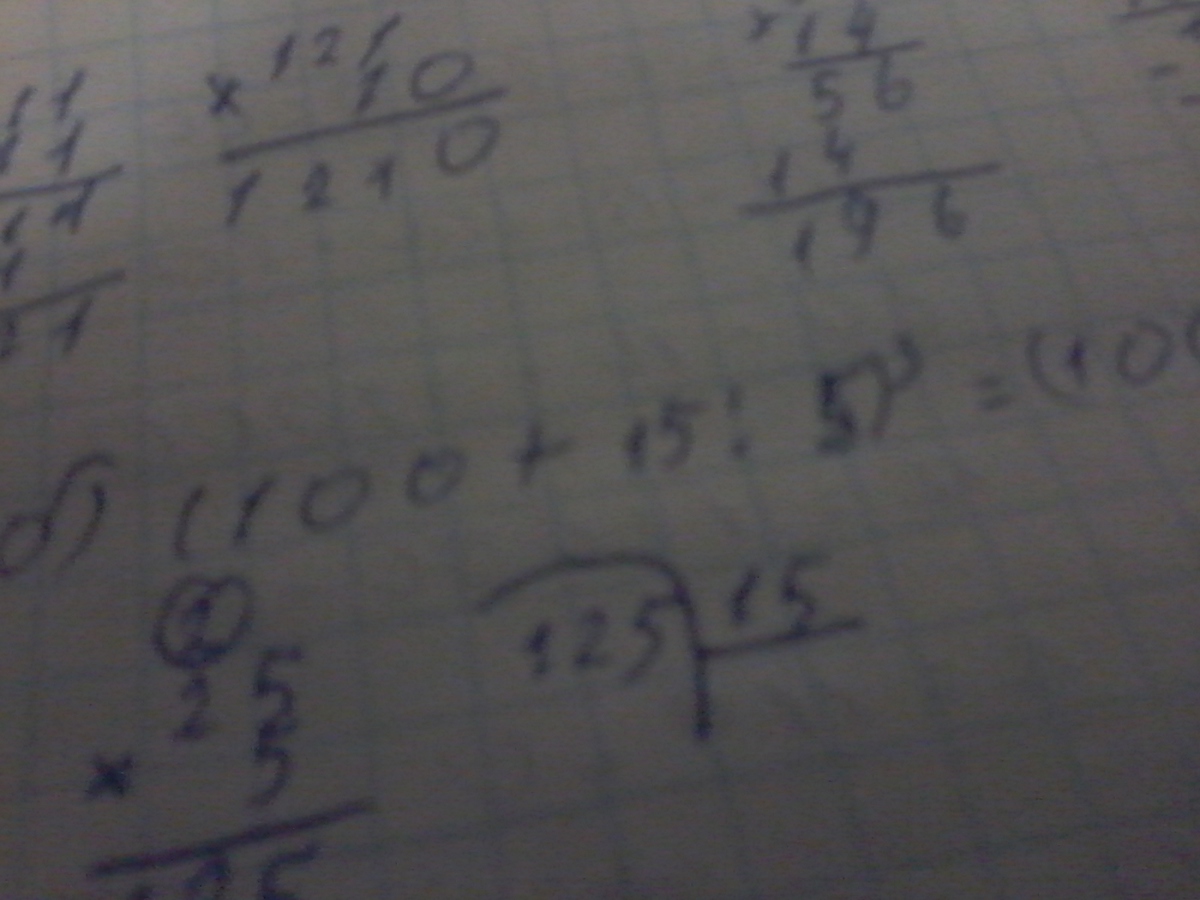 11
11
11
1
21
× 121
10
1210
× 14
56
14
196
б) (100 + 15 : 5)³ = (10
2
25
× 5
125
125 | 15